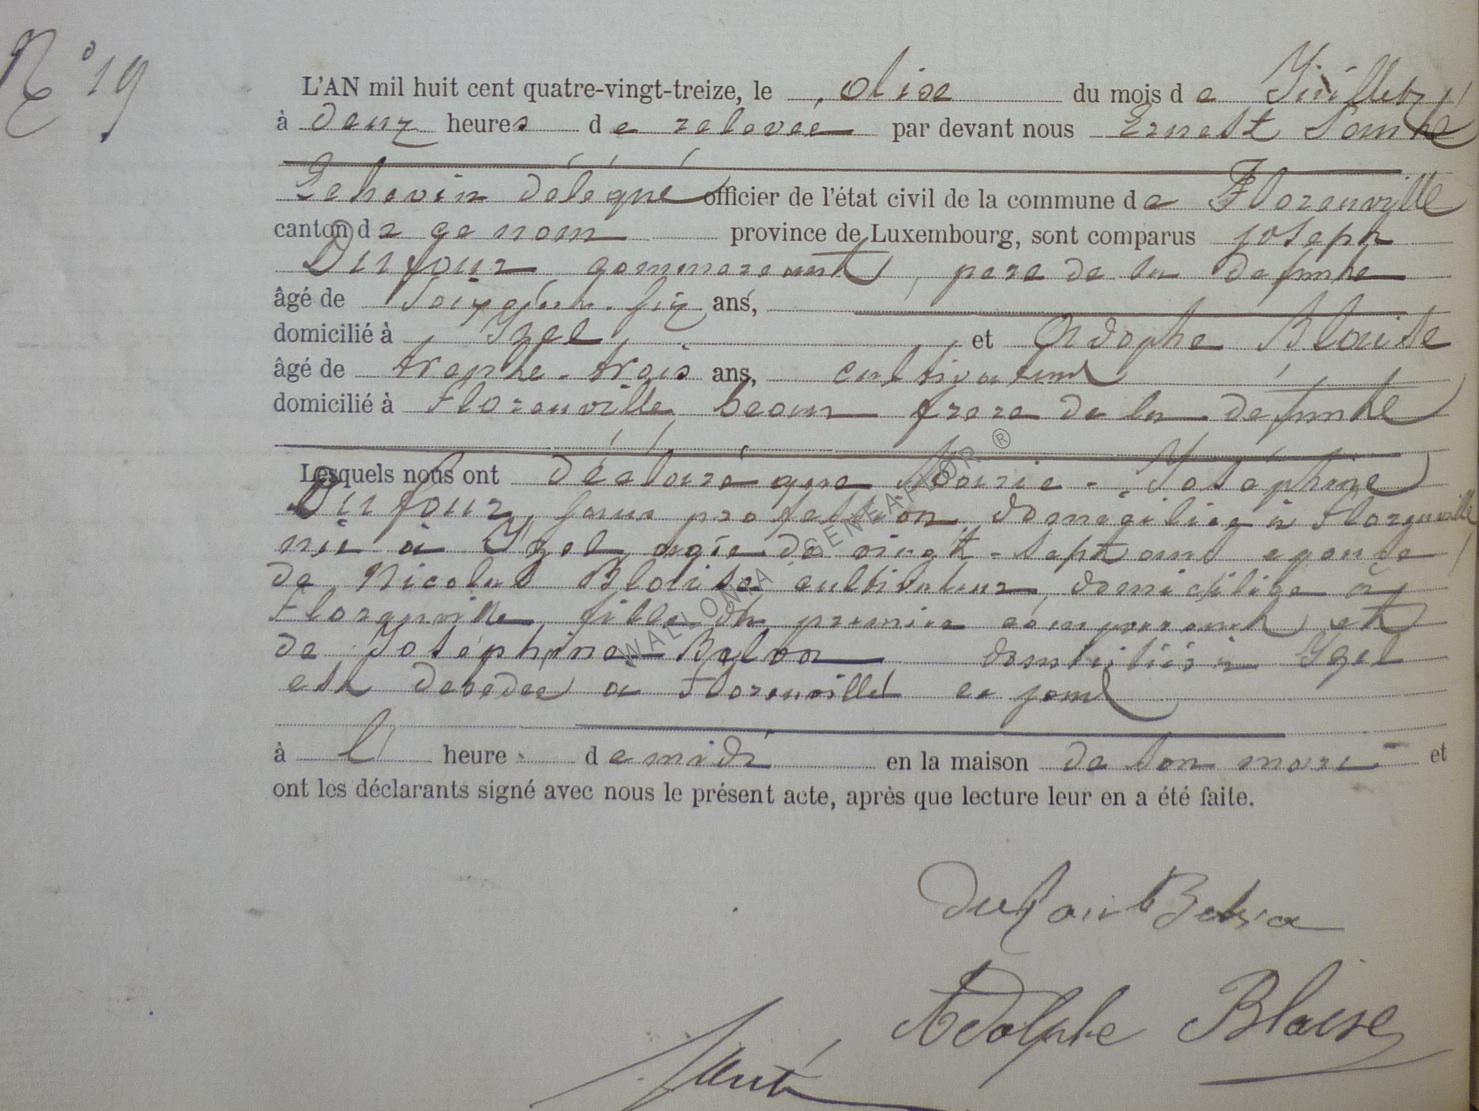 N° 19
L'AN mil huit cent quatre-vingt-treize, le dise du mois de Juillet
à deux heures de relevee par devant nous Ernest Santé
Echevin délégué officier de l'état civil de la commune de Florenville
canton de ce nom province de Luxembourg, sont comparus joseph
Dufour commercant, pere de la defunte
âgé de soixante-six ans,
domicilié à Izel et Adophe Blaise
âgé de trente-trois ans, cultivateur
domicilié à Florenville beau frere de la defunte
Lesquels nous ont déclaré que Marie-Joséphine
Dufour, sans profession, domiciliee à Florenville
née à Izel, agée de vingt-sept ans epouse
de Nicolas Blaise cultivateur, domicilie à
Florenville, fille du premier comparant, et
de Joséphine domiciliés à Izel
est decedee a Florenville ce jour
à l' heure de midi en la maison de son mari et
ont les déclarants signé avec nous le présent acte, après que lecture leur en a été faite.
Dufour
Adolphe Blaise
Santé
WALLONIA - GENEAFLOR ®